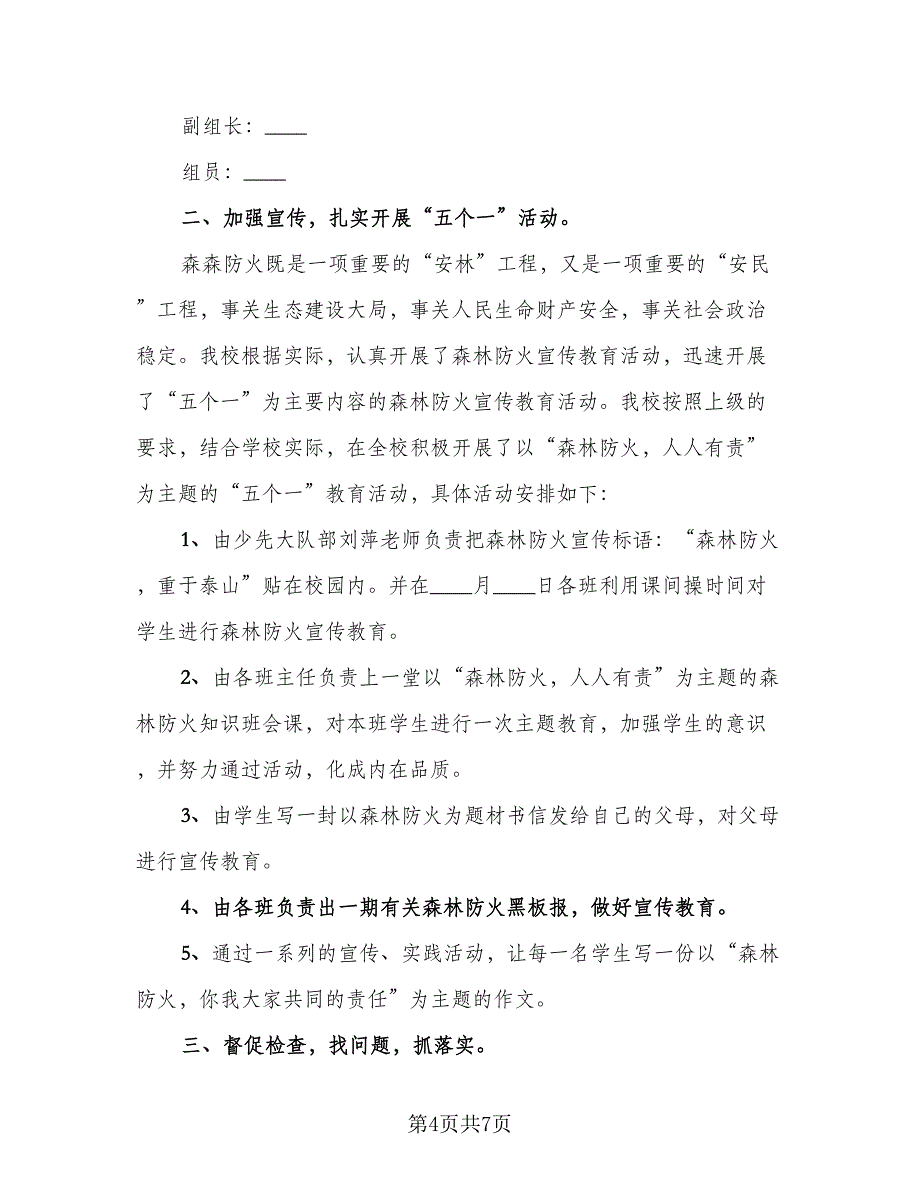 副组长：____
组员：____
二、加强宣传，扎实开展“五个一”活动。
森森防火既是一项重要的“安林”工程，又是一项重要的“安民
”工程，事关生态建设大局，事关人民生命财产安全，事关社会政治
稳定。我校根据实际，认真开展了森林防火宣传教育活动，迅速开展
了“五个一”为主要内容的森林防火宣传教育活动。我校按照上级的
要求，结合学校实际，在全校积极开展了以“森林防火，人人有责”
为主题的“五个一”教育活动，具体活动安排如下：
1、由少先大队部刘萍老师负责把森林防火宣传标语：“森林防火
，重于泰山”贴在校园内。并在____月____日各班利用课间操时间对
学生进行森林防火宣传教育。
2、由各班主任负责上一堂以“森林防火，人人有责”为主题的森
林防火知识班会课，对本班学生进行一次主题教育，加强学生的意识
，并努力通过活动，化成内在品质。
3、由学生写一封以森林防火为题材书信发给自己的父母，对父母
进行宣传教育。
4、由各班负责出一期有关森林防火黑板报，做好宣传教育。
5、通过一系列的宣传、实践活动，让每一名学生写一份以“森林
防火，你我大家共同的责任”为主题的作文。
三、督促检查，找问题，抓落实。
第4页共7页